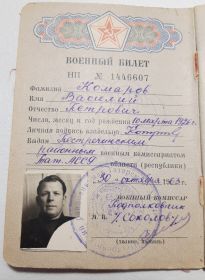 ВОЕННЫЙ БИЛЕТ
НП № 1446607
Фамилия Комаров
Имя Василий
Отчество Петрович
Число, месяц и год рождения 10 марта
Личная подпись владельца
Выдан
районным военным комиссариатом
Тат. АССР области (республики)
30 октября 1963 г.
ВОЕННЫЙ КОМИССАР
Подполковник
М. П. /Соколов/
(звание, подпись)